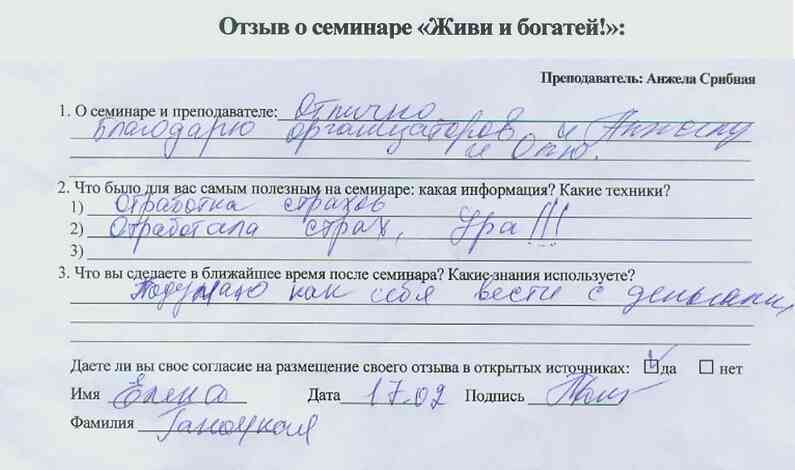 Отзыв о семинаре «Живи и богатей!»:
Преподаватель: Анжела Срибная
1. О семинаре и преподавателе: Отлично
Благодарю организаторов и Анжелу
и Олю.
2. Что было для вас самым полезным на семинаре: какая информация? Какие техники?
1) Отработка страхов
2) Отработала страх, Ура!!!
3)
3. Что вы сделаете в ближайшее время после семинара? Какие знания используете?
Подумаю как себя вести с деньгами,
Даете ли вы свое согласие на размещение своего отзыва в открытых источниках: да нет
Имя Елена Дата 17.02 Подпись
Фамилия